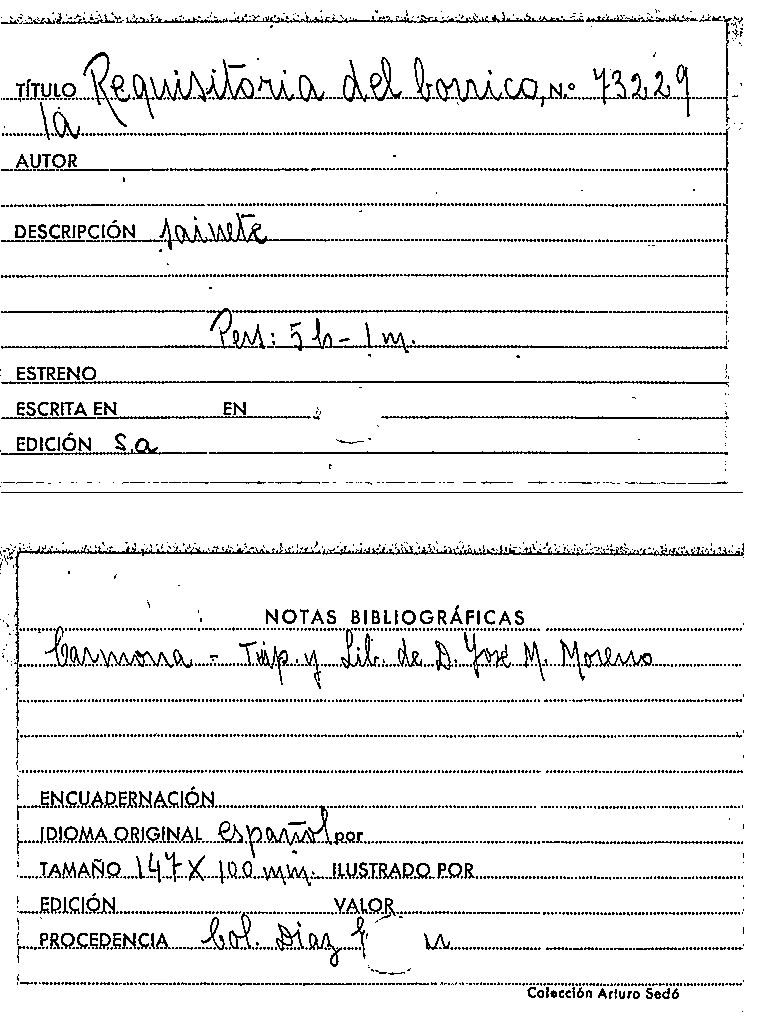 TÍTULO Requisitoria del borrico, N.º 73229
la
AUTOR
DESCRIPCIÓN sainete
Pers: 5 h - 1 m.
ESTRENO
ESCRITA EN EN
EDICIÓN S.a
NOTAS BIBLIOGRÁFICAS
Carmona - Imp. y Lib. de D. José M. Moreno
ENCUADERNACIÓN
IDIOMA ORIGINAL español por
TAMAÑO 147 X 100 mm. ILUSTRADO POR
EDICIÓN VALOR
PROCEDENCIA Col. Diaz
Colección Arturo Sedó